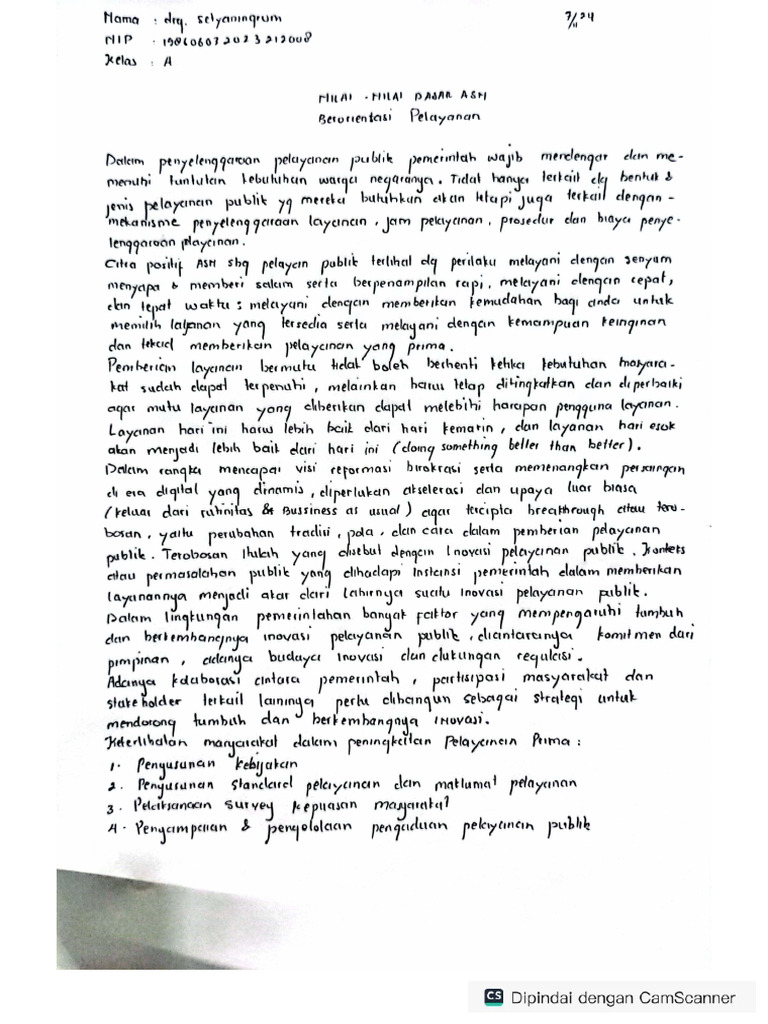 Nama : drg. setyaningrum
7/11 24
NIP : 198606072023212008
Kelas : A
NILAI - NILAI DASAR ASN
Berorientasi Pelayanan
Dalam penyelenggaraan pelayanan publik pemerintah wajib mendengar dan me-
menuhi tuntutan kebutuhan warga negaranya. Tidak hanya terkait dg bentuk &
jenis pelayanan publik yg mereka butuhkan akan tetapi juga terkait dengan -
mekanisme penyelenggaraan layanan, jam pelayanan, prosedur dan biaya penye-
lenggaraan playanan.
Citra positif ASN sbg pelayan publik terlihat dg perilaku melayani dengan senyum
menyapa & memberi salam serta berpenampilan rapi, melayani dengan cepat,
dan tepat waktu ; melayani dengan memberikan kemudahan bagi anda untuk
memilih layanan yang tersedia serta melayani dengan kemampuan keinginan
dan tekad memberikan pelayanan yang prima.
Pemberian layanan bermutu tidak boleh berhenti ketika kebutuhan masyara-
kat sudah dapat terpenuhi, melainkan harus tetap ditingkatkan dan diperbaiki
agar mutu layanan yang diberikan dapat melebihi harapan pengguna layanan.
Layanan hari ini harus lebih baik dari hari kemarin, dan layanan hari esok
akan menjadi lebih baik dari hari ini (doing something better than better).
Dalam rangka mencapai visi reformasi birokrasi serta memenangkan persaingan
di era digital yang dinamis, diperlukan akselerasi dan upaya luar biasa
(keluar dari rutinitas & Bussiness as usual) agar tercipta breakthrough atau tero-
bosan, yaitu perubahan tradisi, pola, dan cara dalam pemberian pelayanan
publik. Terobosan itulah yang disebut dengan Inovasi pelayanan publik. Konteks
atau permasalahan publik yang dihadapi instansi pemerintah dalam memberikan
layanannya menjadi akar dari lahirnya suatu inovasi pelayanan publik.
Dalam lingkungan pemerintahan banyak faktor yang mempengaruhi tumbuh
dan berkembangnya inovasi pelayanan publik, diantaranya komitmen dari
pimpinan, adanya budaya inovasi dan dukungan regulasi.
Adanya kolaborasi antara pemerintah, partisipasi masyarakat dan
stakeholder terkait lainnya perlu dibangun sebagai strategi untuk
mendorong tumbuh dan berkembangnya inovasi.
Keterlibatan masyarakat dalam peningkatan Pelayanan Prima :
1. Pengusunan kebijakan
2. Pengusunan standard pelayanan dan maklumat pelayanan
3. Pelaksanaan survey kepuasan masyarakat
4. Pengampaian & pengololaan pengaduan pelayanan publik
CS Dipindai dengan CamScanner